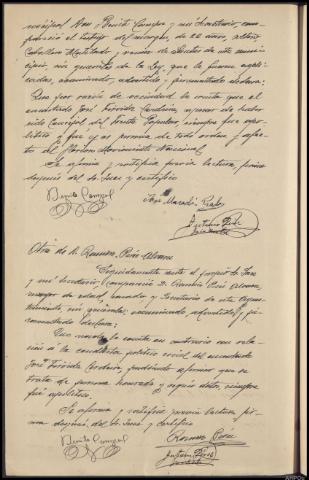 municipal Don Benito Campos y mi Secretario, com-
pareció el testigo del margen, de 22 años, soltero
Caballero Mutilado y vecino de de este muni-
cipio, sin generales de la Ley que le fueron expli-
cadas, juramentado, advertido y juramentado declara:
Que por razón de vecindad le consta que el
encartado José Cardeira, apesar de haber
sido Concejal del Frente Popular, siempre fue apo-
lítico y fue y es persona de todo orden y afec-
to al Glorioso Movimiento Nacional
Se afirma y ratifica previa lectura, firma
después del Sr Juez y certifico
Benito Campos
José
Antonio
Otra de D. Ramón Peré Alvarez
Seguidamente ante el propio Sr Juez
y mi Secretario, compareció D. Ramón Peré Alvarez,
mayor de edad, casado y Secretario de este Ayun-
tamiento, sin generales, juramentado, advertido y ju-
ramentado declara:
Que nada le consta en contrario con rela-
ción á la conducta político social del encartado
José Cardeira, pudiendo afirmar que se
trata de persona honrada y según datos, siempre
fue apolítico.
Se afirma y ratifica previa lectura fir-
ma después del Sr Juez y certifico
Benito Campos
Ramón Peré
Antonio